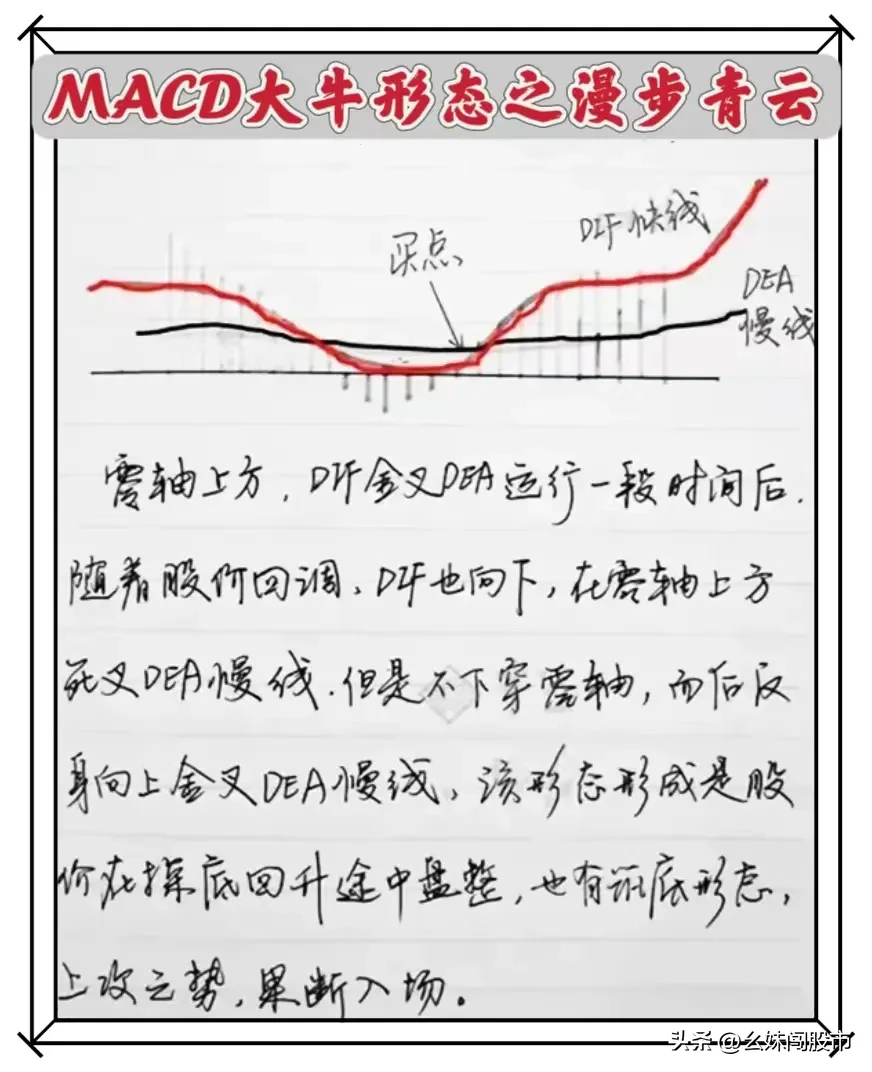 MACD大牛形态之漫步青云
买点
DIF快线
DEA
慢线
零轴上方,DIF金叉DEA运行一段时间后.
随着股价回调、DIF也向下,在零轴上方
死叉DEA慢线.但是不下穿零轴,而后反
身向上金叉DEA慢线、该形态形成是股
价在探底回升途中盘整,也有筑底形态,
上攻之势,果断入场。
头条 @幺妹闯股市